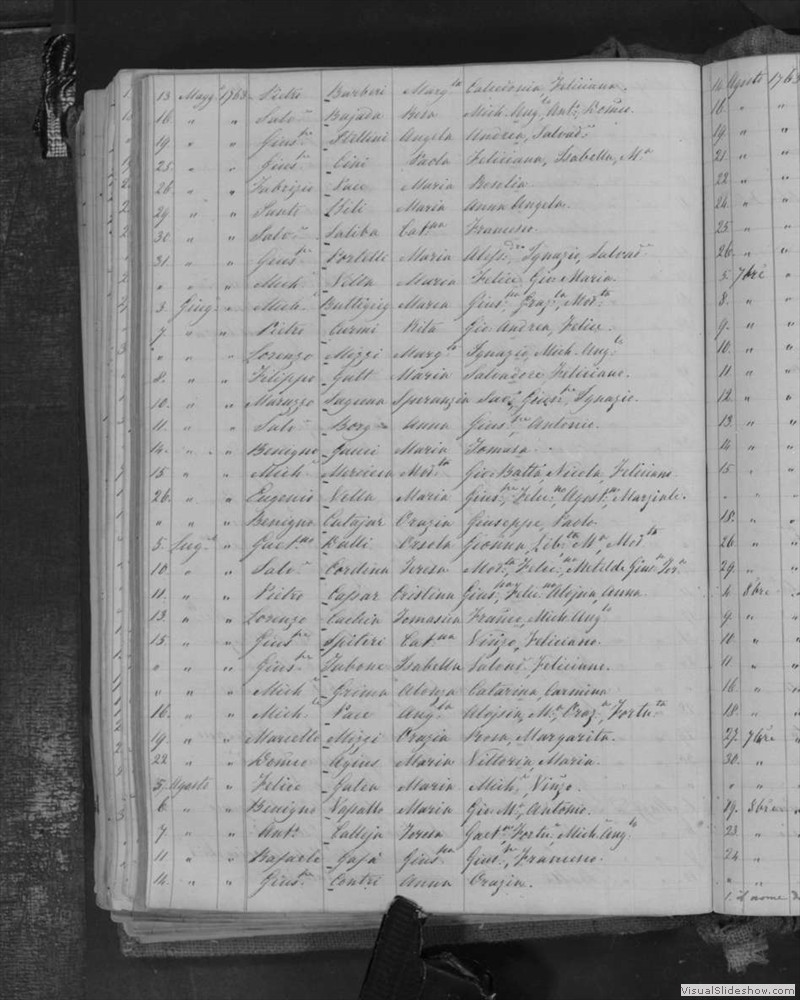 13. Magg.o 1763 Pietro Barberi Marg.ta Calcidonia, Feliciana.
16. " " Salv.e Bugada Rosa Mich. Ang.lo, Ant.o, Romeo.
19. " " Gius.pe Stellini Angela Andrea, Salvad.e
25. " " Gius.pe Cini Paola Feliciana, Isabella, M.a
26. " " Fabrizio Pace Maria Rosolia.
29. " " Santo Maria Anna Angela.
30. " " Salv.e Saliba Cat.na Francesco.
31. " " Gius.pe Portelli Maria Aless.dro, Ignazio, Salvad.e
" " " Mich.e Vella Maria Felice, Gio Maria.
3. Giug.o " Mich.e Buttigieg Maria Gius.pe, Graz.la, Mod.ta
7. " " Pietro Curmi Rita Gio Andrea, Felice.
" " " Lorenzo Mizzi Marg.ta Ignazio, Mich. Ang.lo
8. " " Filippo Galt Maria Salvadore Feliciano.
10. " " Maruzzo Saguna Speranzia Ignazio.
11. " " Salv.e Borg Anna Gius.pe Antonio.
14. " " Benigno Gauci Maria Tomasa.
15. " " Mich.e Mercieca Mod.ta Gio Batta, Nicola, Feliciano.
26. " " Eugenio Vella Maria Gius.pe, Felic.no, Agost.no, Marziale.
" " " Benigno Catajar Orazia Giuseppe, Paolo.
5. Lug.o " Gaet.no Balli Orsola Gionna, Lib.ta, M.a, Mod.ta
10. " " Salv.e Cordina Teresa Mod.ta, Felic.no, Metilde
11. " " Pietro Caspar Cristina Gius.pe, Felic.no, Alojsia, Anna.
13. " " Lorenzo Cachia Tomasica Franco, Mich. Ang.lo
15. " " Gius.pe Spiteri Cat.na Vinzo, Feliciano.
" " " Gius.pe Tabone Isabella Salvad.e Feliciano.
" " " Mich.e Grima Alonza Catarina, Carmina.
16. " " Mich.e Pace Ang.la Alojsia, M.a, Oraz.a, Fortu.ta
19. " " Marcello Mizzi Orazia Rosa, Margarita.
22. " " Romeo Agius Maria Vittoria, Maria.
5. Agosto " Felice Galea Maria Mich.e, Vinzo.
6. " " Benigno Vassallo Maria Gio M.a, Antonio.
7. " " Ant.o Calleja Teresa Gaet.no, Fortu.to, Mich. Ang.lo
11. " " Rafaele Gius.pa Gius.pe, Francesco.
14. " " Gius.pe Contri Anna Orazia.
14. Agosto 1763
16. " "
19. " "
21. " "
22. " "
24. " "
25. " "
26. " "
5. 7bre "
8. " "
9. " "
10. " "
11. " "
12. " "
13. " "
14. " "
15. " "
" " "
18. " "
26. " "
29. " "
4. 8bre
9. " "
10. " "
11. " "
16. " "
18. " "
27. 7bre
30. "
" "
19. 8bre
23. "
24. "
" "
1. il nome
VisualSlideshow.com